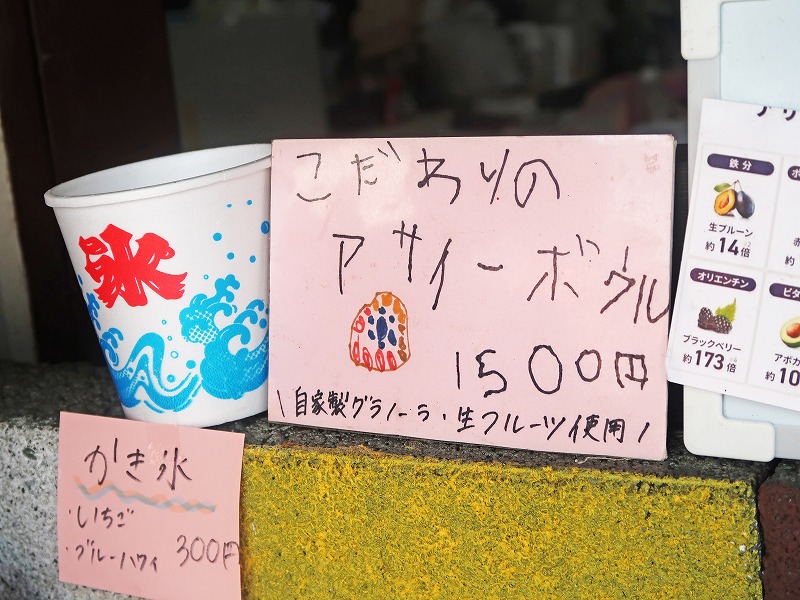 氷
こだわりの
アサイーボウル
1500円
\ 自家製グラノーラ・生フルーツ使用 /
かき氷
・いちご
・ブルーハワイ 300円
鉄分
生プルーン
約14倍
オリエンチン
ブラックベリー
約173倍
アボカ
約10